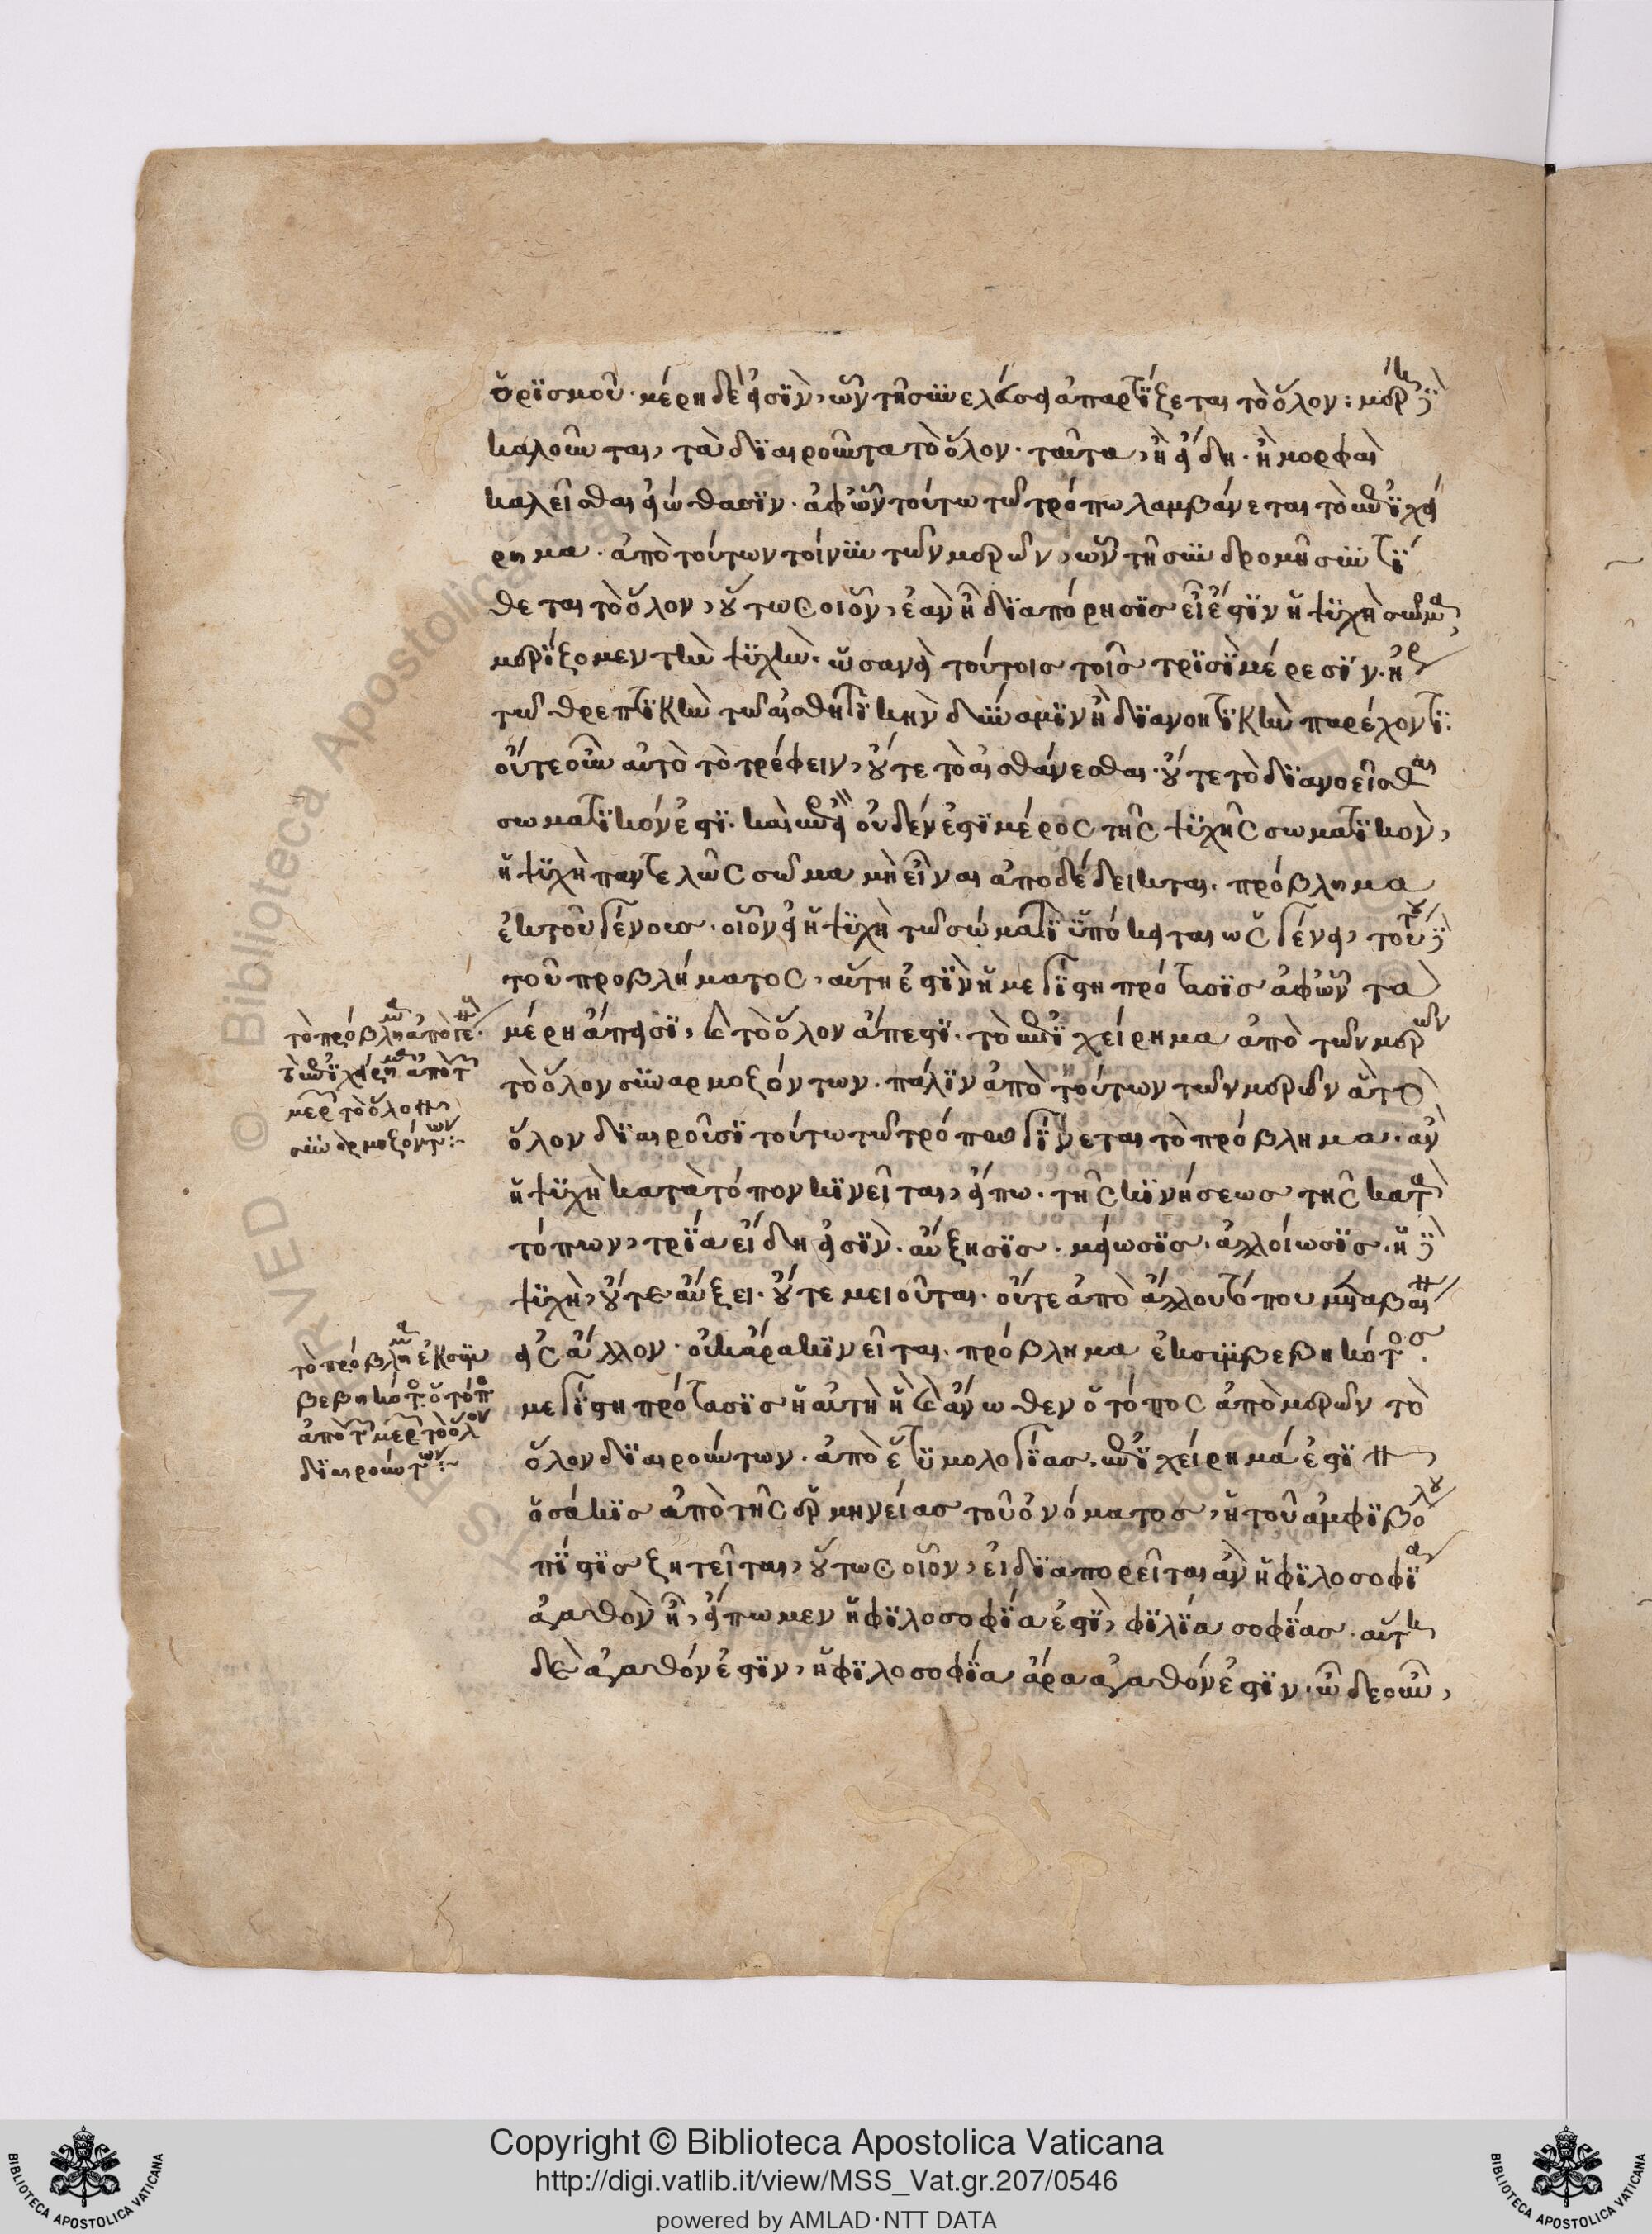 ὁρισμοῦ. μέρη δὲ εἰσὶν, ὧν τῆ συνελεύσει ἀπαρτίζεται τὸ ὅλον: μέρη
καλοῦνται, τὰ διαιροῦντα τὸ ὅλον. ταῦτα, ἢ εἴδη. ἢ μορφαὶ
καλεῖσθαι εἰώθασιν. ἀφὧν τούτω τῶ τρόπω λαμβάνεται τὸ ἐπιχεί
ρημα. ἀπὸ τούτων τοίνυν τῶν μερῶν, ὧν τῆ συνδρομῆ συντί
θεται τὸ ὅλον, οὕτως οἷον, ἐὰν ἦ διαπόρησις εἰ ἐστιν ἡ ψυχὴ σῶμα,
μερίζομεν τὴν ψυχὴν. ὡσανεὶ τούτοις τοῖς τρισὶ μέρεσιν. ἢ
τῶ θρεπτικὴν τῶ αἰσθητικὴν δύναμιν ἢ διανοητικὴν παρέχοντι.
οὔτε οὖν αὐτὸ τὸ τρέφειν, οὔτε τὸ αἰσθάνεσθαι. οὔτε τὸ διανοεῖσθαι
σωματικόν ἐστι. καὶ ἐπεὶ οὐδέν ἐστι μέρος τῆς ψυχῆς σωματικὸν,
ἡ ψυχὴ παντελῶς σῶμα μὴ εἶναι ἀποδέδεικται. πρόβλημα
ἐκ τοῦ γένους. οἷον εἰ ἡ ψυχὴ τῶ σώματι ὑπόκειται ὡς γένει, τούτου
τοῦ προβλήματος, αὕτη ἐστὶν ἡ μεγίστη πρότασις ἀφὧν τὰ
μέρη ἄπεισι, καὶ τὸ ὅλον ἄπεστι. τὸ ἐπιχείρημα ἀπὸ τῶν μερῶν
τὸ ὅλον συναρμοζόντων. πάλιν ἀπὸ τούτων τῶν μερῶν ἃ τὸ
ὅλον διαιροῦσι τούτω τῶ τρόπω γίνεται τὸ πρόβλημα. ἂν
ἡ ψυχὴ κατὰ τόπον κινεῖται, εἴπω. τῆς κινήσεως τῆς κατὰ
τόπων, τρία εἴδη εἰσὶν. αὔξησις. μείωσις. ἀλλοίωσις. ἡ
ψυχὴ, οὔτε αὔξει. οὔτε μειοῦται. οὔτε ἀπὸ ἄλλου τόπου μεταβαίνει
εἰς ἄλλον. οὐκ ἄρα κινεῖται. πρόβλημα ἐκ συμβεβηκότος.
μεγίστη πρότασις ἡ αὐτὴ ἡ καὶ ἄνωθεν ὁ τόπος ἀπὸ μερῶν τὸ
ὅλον διαιρούντων. ἀπὸ ἐτυμολογίας. ἐπιχείρημά ἐστιν,
ὁσάκις ἀπὸ τῆς ἑρμηνείας τοῦ ὀνόματος, ἡ τοῦ ἀμφιβόλου
πίστις ζητεῖται, οὕτως οἷον, εἰ διαπορεῖται ἂν ἡ φιλοσοφία
ἀγαθὸν ἦ, εἴπωμεν ἡ φιλοσοφία ἐστὶ, φιλία σοφίας. αὕτη
δὲ ἀγαθόν ἐστιν, ἡ φιλοσοφία ἄρα ἀγαθόν ἐστιν. ὧδε οὖν,
τὸ πρόβλημα ἀπὸ γένους.
τὸ ἐπιχείρημα ἀπὸ τῶν
μερῶν τὸ ὅλον
συναρμοζόντων:
τὸ πρόβλημα ἐκ συμ
βεβηκότος. ὁ τόπος
ἀπὸ τῶν μερῶν τὸ ὅλον
διαιρούντων:
Copyright © Biblioteca Apostolica Vaticana
http://digi.vatlib.it/view/MSS_Vat.gr.207/0546
powered by AMLAD·NTT DATA
BIBLIOTECA APOSTOLICA VATICANA
BIBLIOTECA APOSTOLICA VATICANA